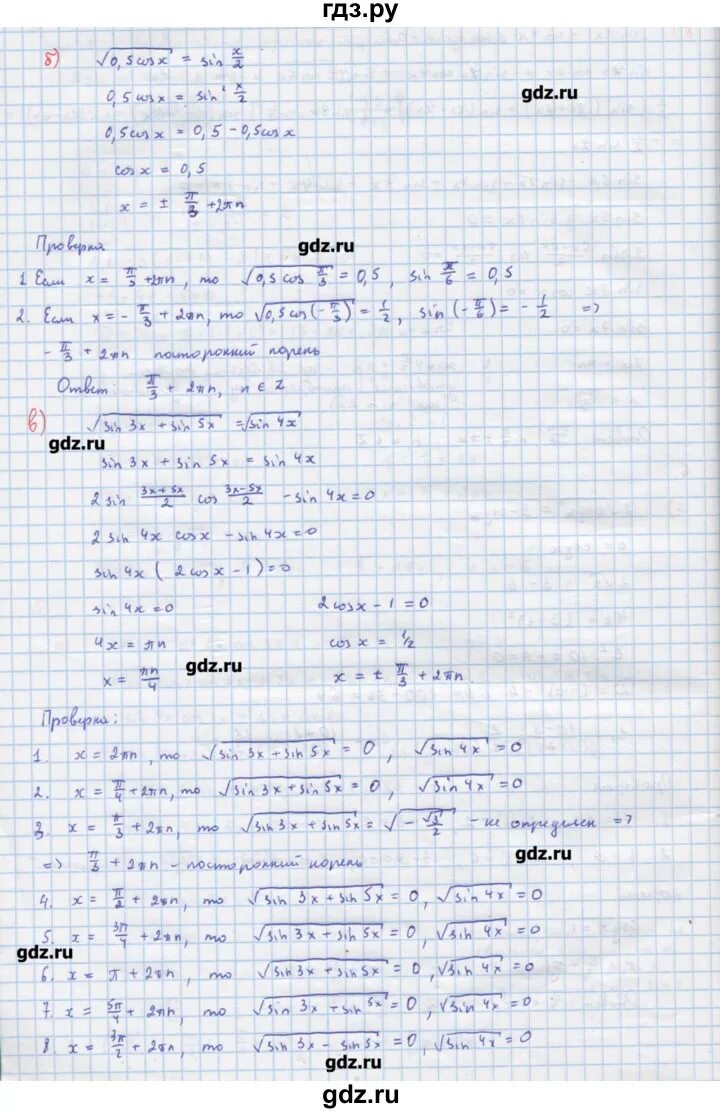 гдз.ру
б) √(0,5cosx) = sin x/2
gdz.ru
0,5cosx = sin² x/2
0,5cosx = 0,5 - 0,5cosx
cosx = 0,5
x = ± π/3 + 2πn
Проверка
gdz.ru
1. Если x = π/3 + 2πn, то √(0,5 cos π/3) = 0,5, sin π/6 = 0,5
2. Если x = - π/3 + 2πn, то √(0,5cos(-π/3)) = 1/2, sin(-π/6) = - 1/2 =>
- π/3 + 2πn посторонний корень
Ответ: π/3 + 2πn, n ∈ Z
в) √(sin 3x + sin 5x) = √(sin 4x)
gdz.ru
sin 3x + sin 5x = sin 4x
2 sin (3x+5x)/2 cos (3x-5x)/2 - sin 4x = 0
2 sin 4x cosx - sin 4x = 0
sin 4x ( 2cosx - 1) = 0
sin 4x = 0 2cosx - 1 = 0
4x = πn cosx = 1/2
gdz.ru
x = πn/4 x = ± π/3 + 2πn.
Проверка:
1. x = 2πn, то √(sin 3x + sin 5x) = 0, √(sin 4x) = 0
2. x = π/4 + 2πn, то √(sin 3x + sin 5x) = 0, √(sin 4x) = 0
3. x = π/3 + 2πn, то √(sin 3x + sin 5x) = √(- √3/2) - не определен =>
gdz.ru
=> π/3 + 2πn - посторонний корень
4. x = π/2 + 2πn, то √(sin 3x + sin 5x) = 0, √(sin 4x) = 0
5. x = 3π/4 + 2πn, то √(sin 3x + sin 5x) = 0, √(sin 4x) = 0
gdz.ru
6. x = π + 2πn, то √(sin 3x + sin 5x) = 0, √(sin 4x) = 0
7. x = 5π/4 + 2πn, то √(sin 3x + sin 5x) = 0, √(sin 4x) = 0
8. x = 3π/2 + 2πn, то √(sin 3x - sin 5x) = 0, √(sin 4x) = 0
gdz.ru
gdz.ru